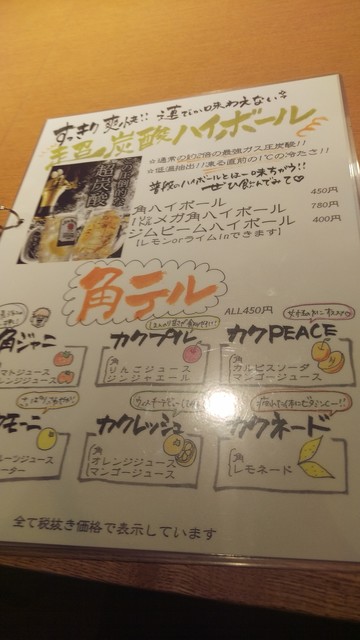 すっきり爽快!! 遠でか味わえない
超炭酸ハイボール
☆通常の約2倍の最強ガス圧炭酸!!
☆低温抽出!!凍る直前の1℃の冷たさ!!
普段のハイボールとは一味ちがう!!
ぜひ飲んでみて♡
超炭酸
角ハイボール 450円
1ℓメガ角ハイボール 780円
ジムビームハイボール 400円
[レモンorライムinできます]
角テル
ALL450円
角ジャニ
マトジュース
レンジジュース
カクプル
角
りんごジュース
ジンジャエール
カクPEACE
角
カルピスソーダ
マンゴージュース
モーニ
ルーンジュース
ーター
カクレッシュ
角
オレンジジュース
マンゴージュース
カクネード
角
レモネード
全て税抜き価格で表示しています